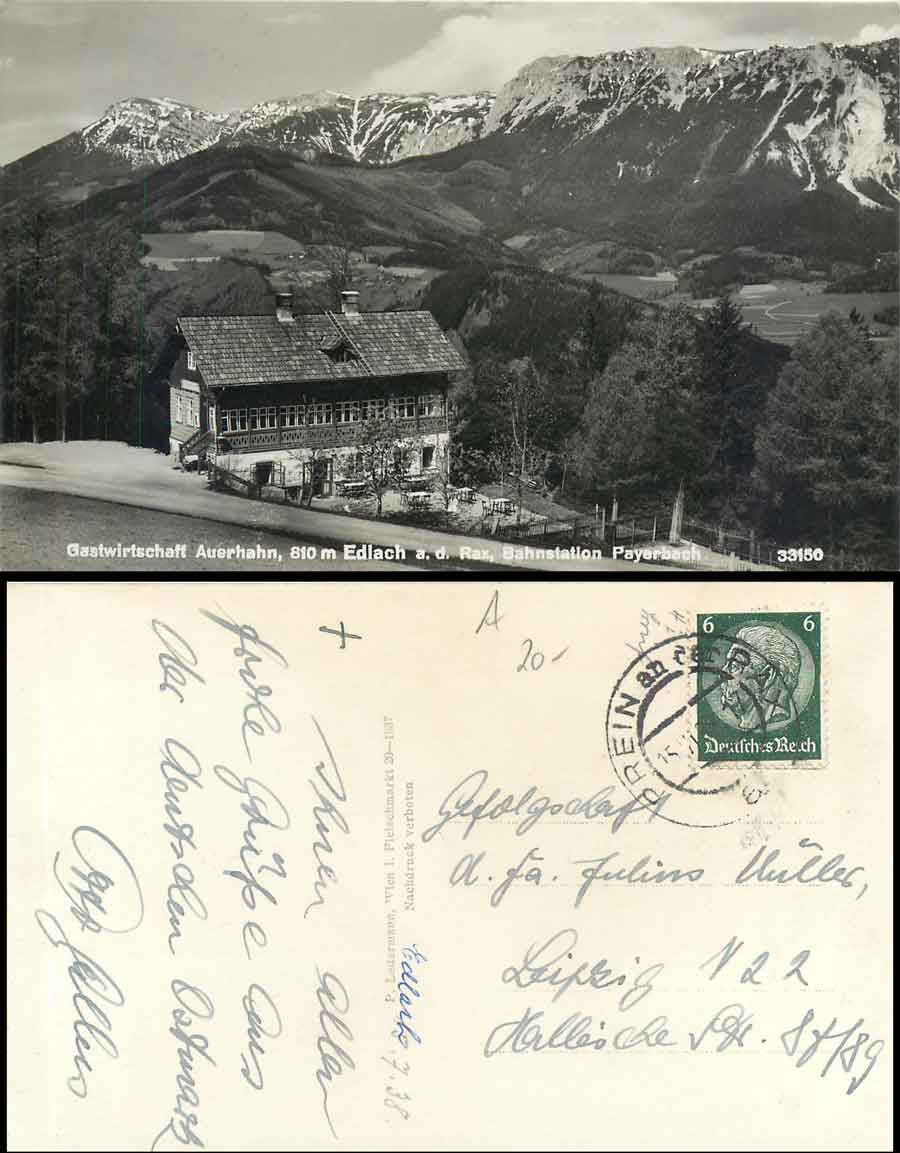 Gastwirtschaft Auerhahn, 810 m Edlach a. d. Rax, Bahnstation Payerbach 33150
Ihnen allen
frohe Grüße aus
der deutschen Ostmark
P. Ledermann, Wien I. Fleischmarkt 20—1937
Nachdruck verboten
Edlach
7.38.
A
20-
6 6
Deutsches Reich
PREIN an der RAX
15.
Gefolgschaft
d. Fa. Julius Müller,
Leipzig N 22
Hallische Str. 87/89